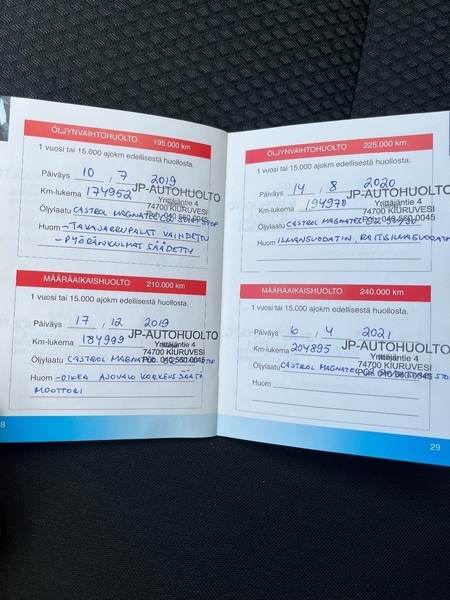 ÖLJYNVAIHTOHUOLTO 195.000 km
1 vuosi tai 15.000 ajokm edellisestä huollosta.
Päiväys 10 . 7 2019
Km-lukema 174952
JP-AUTOHUOLTO
Yrittäjäntie 4
74700 KIURUVESI
Puh. 040 560 0045
Öljylaatu CASTROL MAGNATEC STOP
Huom - TAKAJARRUPALAT VAIHDETTU
- PYÖRÄNKULMAT SÄÄDETTY
MÄÄRÄAIKAISHUOLTO 210.000 km
1 vuosi tai 15.000 ajokm edellisestä huollosta.
Päiväys 17 . 12 2019
Km-lukema 184999
JP-AUTOHUOLTO
Yrittäjäntie 4
74700 KIURUVESI
Puh. 040 560 0045
Öljylaatu CASTROL MAGNATEC
Huom - OIKEA AJOVALO KORKEUS SÄÄTÖ
MOOTTORI
8
ÖLJYNVAIHTOHUOLTO 225.000 km
1 vuosi tai 15.000 ajokm edellisestä huollosta.
Päiväys 14 . 8 2020
Km-lukema 194970
JP-AUTOHUOLTO
Yrittäjäntie 4
74700 KIURUVESI
Puh. 040 560 0045
Öljylaatu CASTROL MAGNATEC
Huom ILMANSUODATIN, RAITISILMASUODATIN
MÄÄRÄAIKAISHUOLTO 240.000 km
1 vuosi tai 15.000 ajokm edellisestä huollosta.
Päiväys 6 . 4 2021
Km-lukema 204895
JP-AUTOHUOLTO
Yrittäjäntie 4
74700 KIURUVESI
Puh. 040 560 0045
Öljylaatu CASTROL MAGNATEC STOP
Huom
29